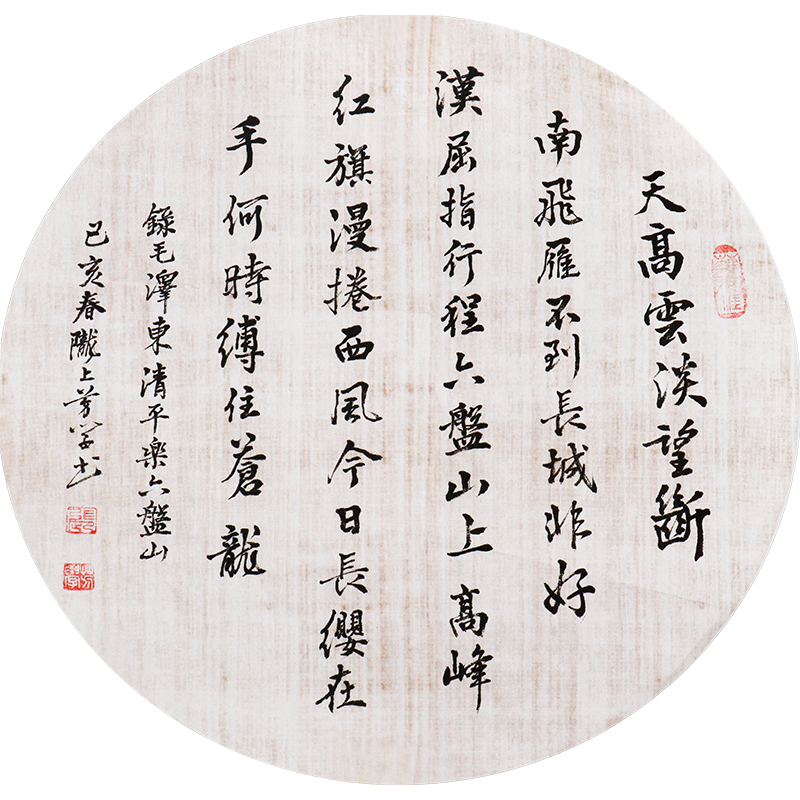 天高雲淡望斷
南飛雁不到長城非好
漢屈指行程六盤山上高峰
红旗漫捲西風今日長纓在
手何時縛住蒼龍
録毛澤東清平樂六盤山
己亥春隴上芳學書